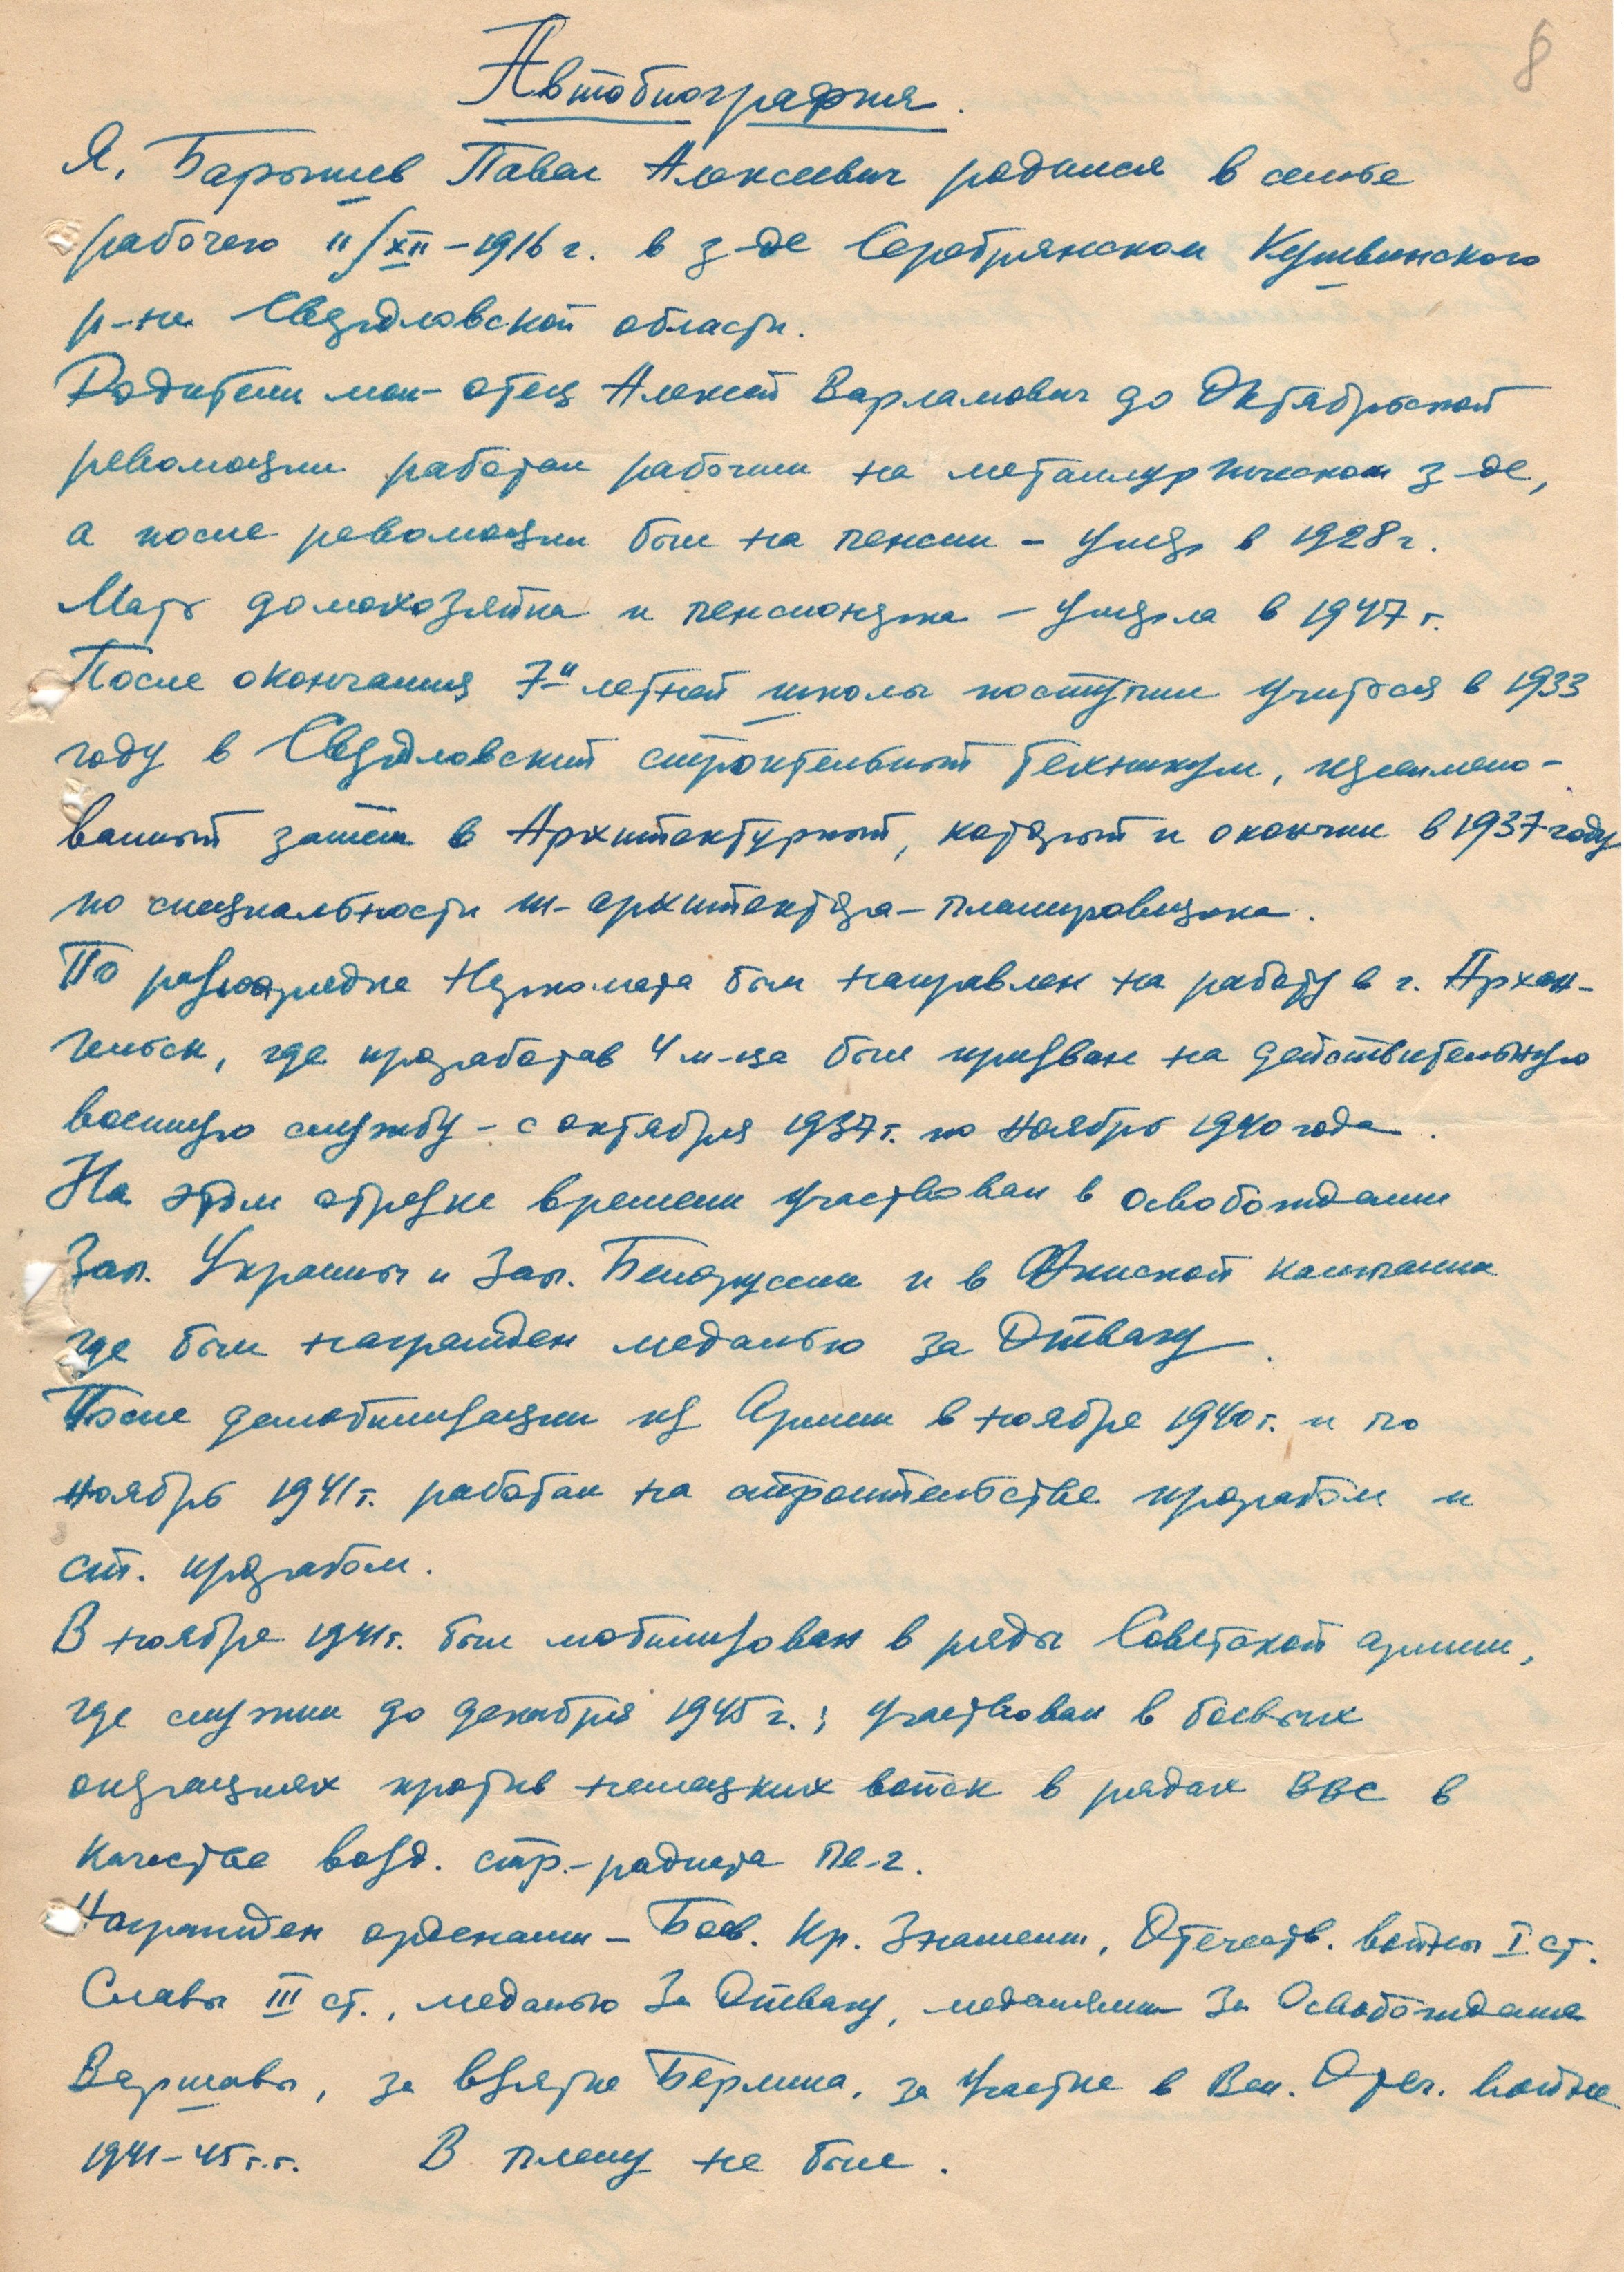 8
Автобиография.
Я, Барышев Павел Алексеевич родился в семье
рабочего 11/XII-1916 г. в з-де Серебрянском Кушвинского
р-на Свердловской области.
Родители мои - отец Алексей Варламович до Октябрьской
революции работал рабочим на металлургическом з-де,
а после революции был на пенсии - умер в 1928 г.
Мать домохозяйка и пенсионерка - умерла в 1947 г.
После окончания 7-и летней школы поступил учиться в 1933
году в Свердловский строительный техникум, переимено-
ванный затем в Архитектурный, который и окончил в 1937 году
по специальности т-архитектора-планировщика.
По разнарядке Наркомата был направлен на работу в г. Архан-
гельск, где проработав 4 м-ца был призван на действительную
военную службу - с октября 1937 г. по ноябрь 1940 года.
На этом отрезке времени участвовал в освобождении
Зап. Украины и Зап. Белоруссии и в Финской кампании
где был награжден медалью за Отвагу.
После демобилизации из Армии в ноябре 1940 г. и по
ноябрь 1941 г. работал на строительстве прорабом и
ст. прорабом.
В ноябре 1941 г. был мобилизован в ряды Советской армии,
где служил до декабря 1945 г.; участвовал в боевых
операциях против немецких войск в рядах ВВС в
качестве возд. стр.-радиста Пе-2.
Награжден орденами - Боев. Кр. Знамени, Отечеств. войны I ст.
Славы III ст., медалью За Отвагу, медалями За Освобождение
Варшавы, за взятие Берлина, за участие в Вел. Отеч. войне
1941-45 г.г. В плену не был.